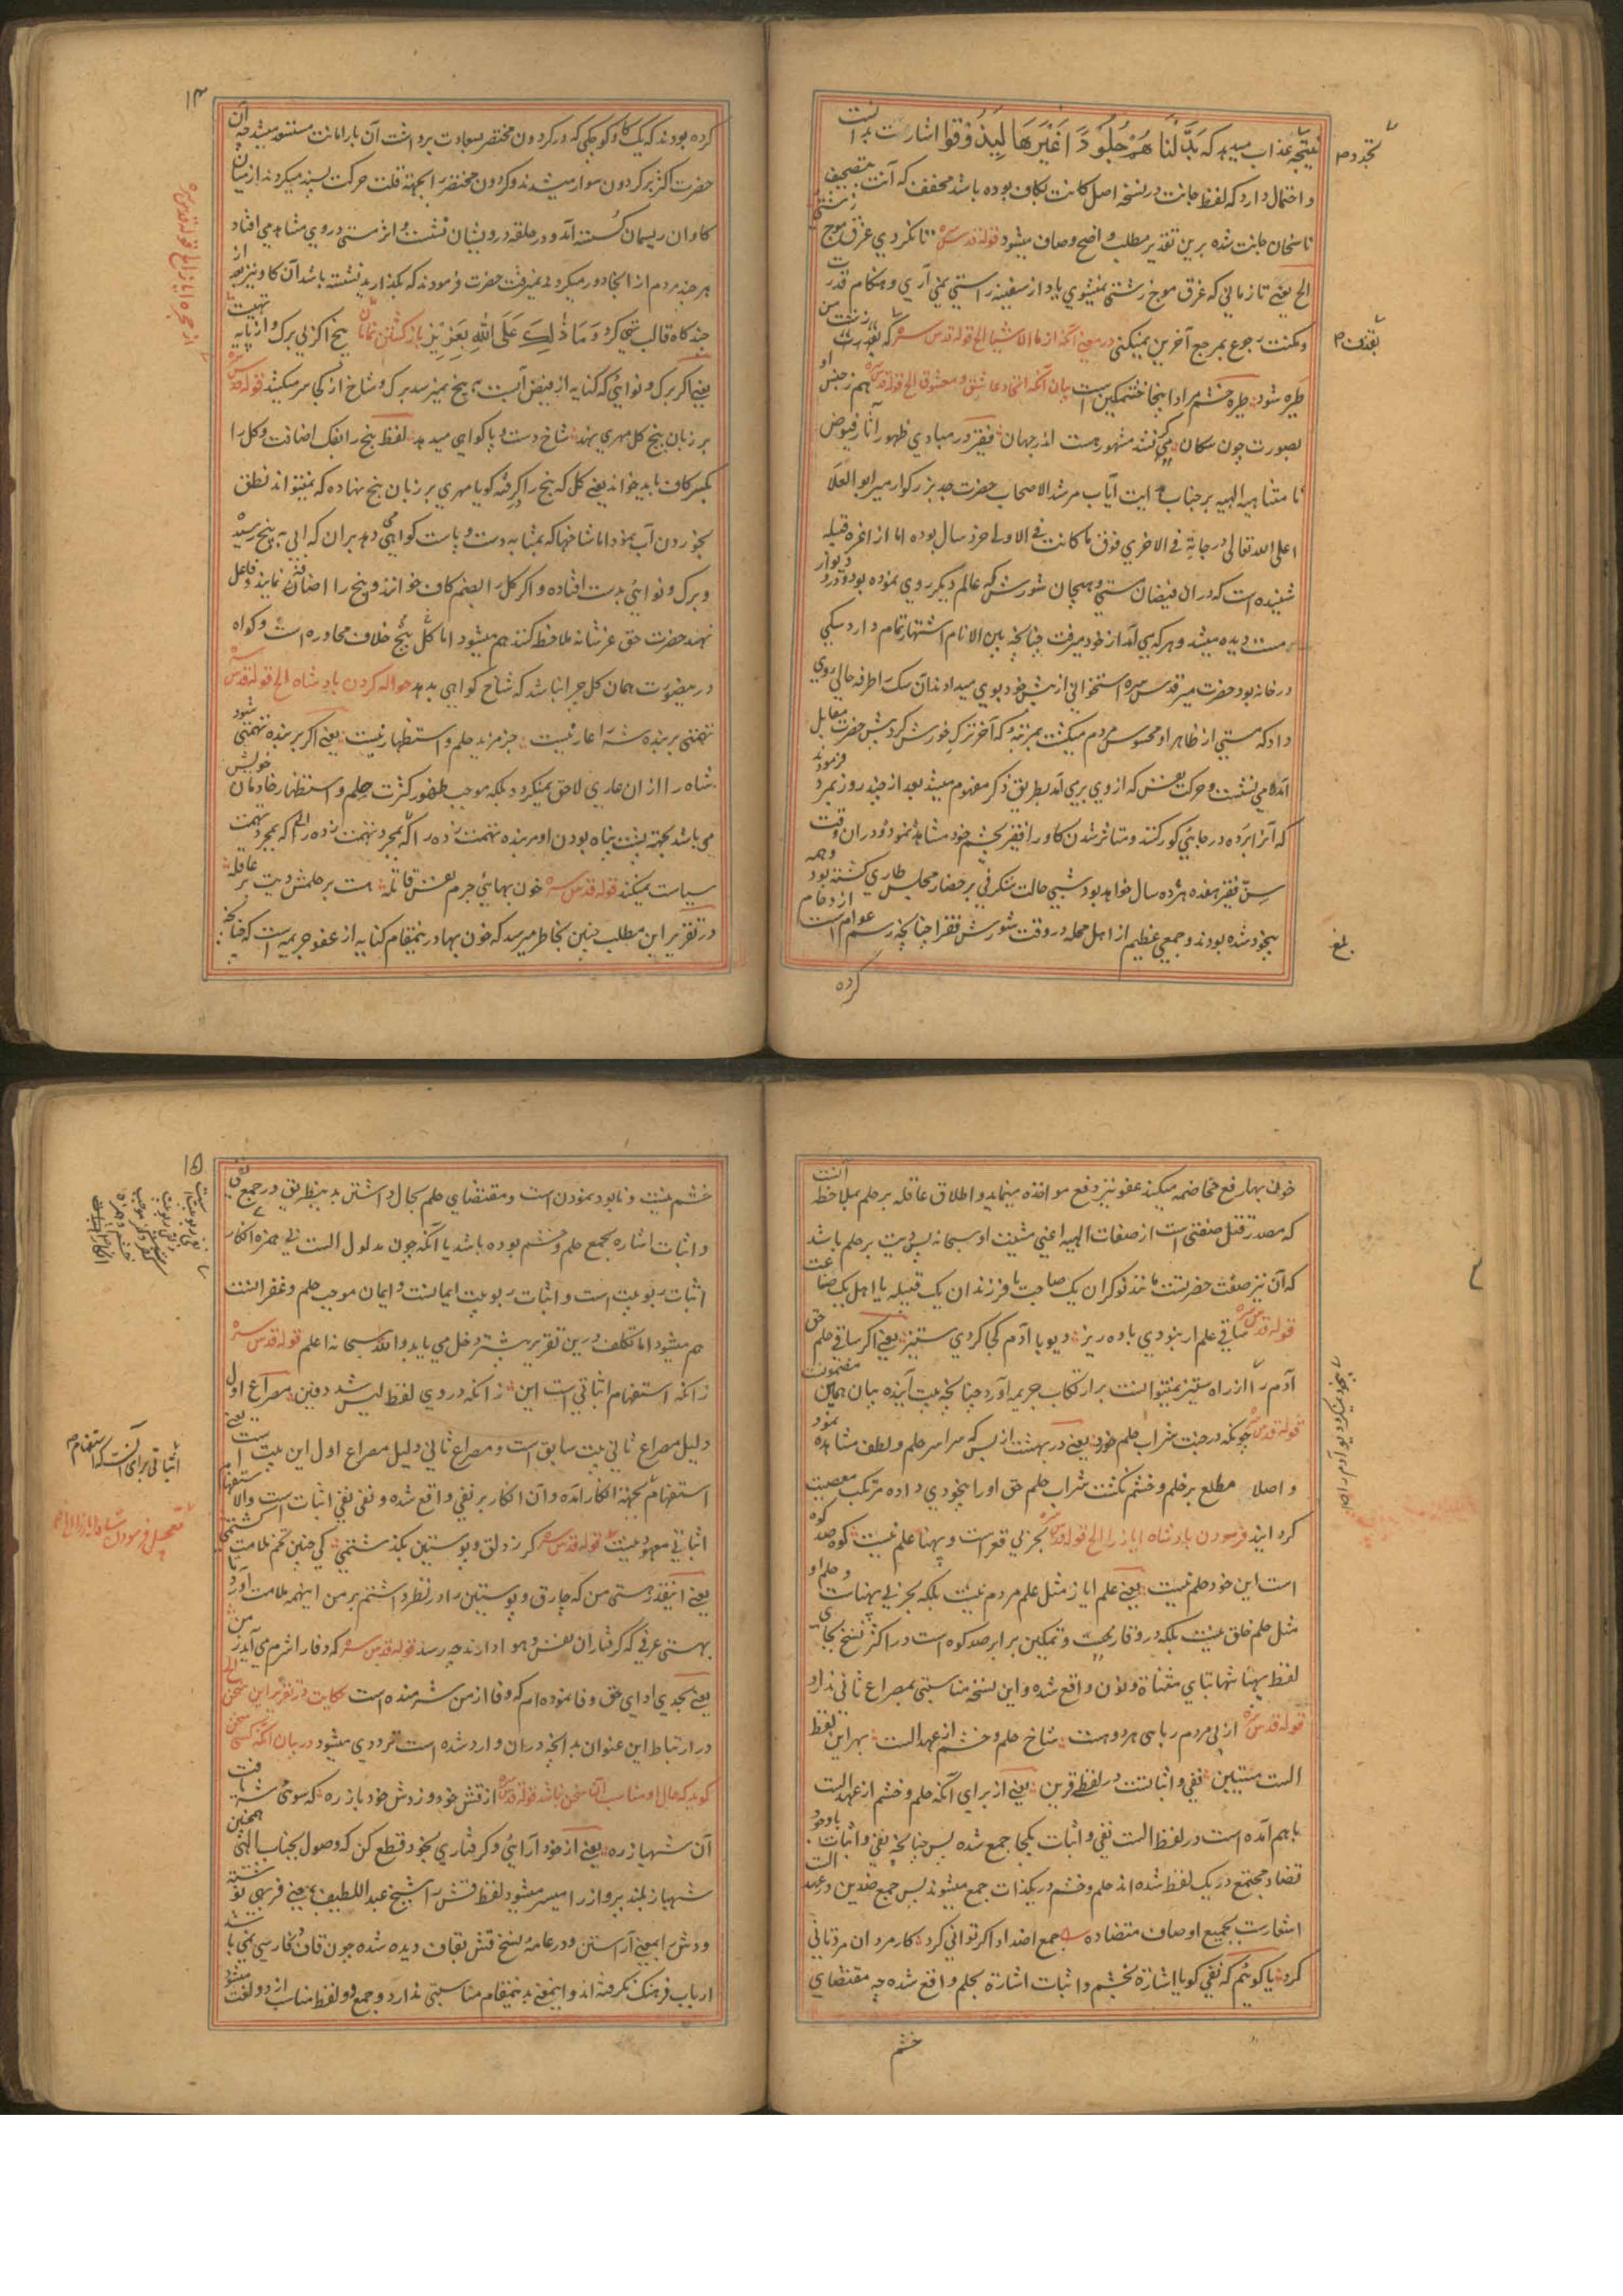 نتیجه عذاب میدهد که بَدَّلْنَا هُمْ جُلُودًا غَیْرَهَا لِیَذُوقُوا اشارت بدانست
و احتمال دارد که لفظ جانت در نسخه اصل کانت بکاف بوده باشد مخفف که آنت بتصحیف
ناسخان جانت شده برین تقدیر مطلب واضح و صاف میشود قوله قدس سره تا نکردی غرق موج زشتی
الخ یعنی تا زمانی که غرق موج زشتی نمیشوی یاد از سفینه راستی نمی آری و هنگام قدرت
و مکنت رجوع بمرجع آخرین نمیکنی در معنی آنکه ارنا الاشیا الخ قوله قدس سره که
طیره شود طیره خشم مراد اینجا خشمگین است بیان آنکه اتحاد عاشق و معشوق الخ قوله قدس سره هم ز جنس او
بصورت چون سکان مشهور هست اندر جهان فقیر در مبادی ظهور آثار فیوض
نا متناهیه الهیه بر جناب هدایت آیاب مرشد الاصحاب حضرت جد بزرکوار میر ابو العلا
اعلی الله تعالی درجاته فی الاخری فوق ما کانت فی الاولی خرد سال بوده اما از اعزه قبیله
شنیده است که در آن فیضان مستی و هیجان شورش که عالم دیکر روی نموده بود و در و دیوار
مست دیده میشد و هر که می آمد از خود میرفت چنانچه بین الانام اشتهار تمام دارد سکی
در خانه بود حضرت میر قدس سره استخوانی از پیش خود بوی میدادند آن سک را طرفه حالی روی
داد که مستی از ظاهر او محسوس مردم میکشت بمرتبه که آخر ترک خورش کرد پیش حضرت مقابل
آمده می نشست و حرکت نفسش که از وی بر می آمد بطریق ذکر مفهوم میشد بعد از چند روز بمرد فرمودند
که آنرا برده در جایی کور کنند و متاثر شدن کاو را فقیر بچشم خود مشاهده نموده و در آن وقت
سن فقیر هفده هژده سال خواهد بود شبی حالت شکرفی بر حضار مجلس طاری کشته بود و همه
بیخود شده بودند و جمعی عظیم از اهل محله در وقت شورش فقرا چنانچه رسم عوام است ازدحام
کرده
تجدد ص
بلغ
۱۴
کرده بودند که یک کاو کوچکی که در کردون مختصر سعادت برداشت آن بار امانت مستسعد میشد چه آن
حضرت اکثر بر کردون سوار میشدند و کردون مختصر را بجهة قلت حرکت پسند میکردند از میان
کاوان ریسمان کسسته آمد و در حلقه درویشان نشست و اثر مستی در وی مشاهد می افتاد
هر چند مردم از انجا دور میکردند نمیرفت حضرت فرمودند که بکذارید نشسته باشد آن کاو نیز بعد از
چند کاه قالب تهی کرد وَ مَا ذٰلِكَ عَلَی اللّٰهِ بِعَزِیْزٍ باز کشتن نمامان بیخ اکر بی برک و از پایه تهیست
یعنی اکر برک و نوایی که کنایه از فیض آبست به بیخ نمیرسد برک و شاخ از کجا سر میکشد قوله قدس سره
بر زبان بیخ کل مهری نهد شاخ دست و پا کواهی میدهد لفظ بیخ را بفک اضافت و کل را
بکسر کاف باید خواند یعنی کل که بیخ را کرفته کویا مهری بر زبان بیخ نهاده که نمیتواند نطق
بخوردن آب نمود اما شاخها که بمثابه دست و پاست کواهی میدهد بران که آبی به بیخ رسیده
و برک و نوایی بدست افتاده و اکر کل را بضم کاف خوانند و بیخ را اضافت نمایند و فاعل
نهد حضرت حق عز شانه ملاحظه کنند هم میشود اما کل بیخ خلاف محاوره است و کواه
درینصورت همان کل چرا نباشد که شاخ کواهی بدهد حواله کردن بادشاه الخ قوله قدس سره
تهمتی بر بنده شه را عار نیست جز مزید حلم و استظهار نیست یعنی اکر بر بنده تهمتی شود
شاه را از ان عاری لاحق نمیکردد بلکه موجب ظهور کثرت حلم و استظهار خادمان خویش
می باشد بجهة پشت پناه بودن او مر بنده تهمت زده را که بمجرد تهمت
سیاست نمیکند قوله قدس سره خونبهایی جرم نفس قاتله هست بر حلمش دیت بر عاقله
در تقریر این مطلب چنین بخاطر میرسد که خون بها درینمقام کنایه از عفو جریمه است که چنانچه
خون بها رفع مخاصمه میکند عفو نیز دفع مواخذه مینماید و اطلاق عاقله بر حلم بملاحظه آنست
که مصدر قتل صفتی است از صفات الهیه اعنی مشیت او سبحانه پس دیت بر حلم باشد
که آن نیز صفت حضرتست مانند نوکران یک صاحب یا فرزندان یک قبیله یا اهل یک صناعت
قوله قدس سره ساقی حلم ار نبودی باده ریز دیو با آدم کجا کردی ستیز یعنی اکر ساقی حلم حق
آدم را از راه ستیز نمیتوانست بر ارتکاب جریمه آورد چنانچه بیت آینده بیان همین مضمونست
قوله قدس سره چونکه در جنت شراب حلم خورد یعنی در بهشت از بس که سراسر حلم و لطف مشاهده نمود
و اصلا مطلع بر خلم و خشم نکشت شراب حلم حق او را بیخودی داده مرتکب معصیت
کردانید فرمودن بادشاه ایاز را الخ قوله قدس سره بحر بی قعر است و پهنا علم نیست کوه و صد کوه
است این خود حلم نیست یعنی علم ایاز مثل علم مردم نیست بلکه بحر بی پهناست و حلم او
مثل حلم خلق نیست بلکه در وقار و تمکین برابر صد کوه است در اکثر نسخ بجای
لفظ پهنا شهاتبای مثناة و نون واقع شده و این نسخه مناسبتی بمصراع ثانی ندارد
قوله قدس سره از پی مردم ربایی هر دو هست شاخ حلم و خشم از عهد الست بهر این لفظ
الست مستبین نفی و اثباتست در لفظ قرین یعنی از برای آنکه حلم و خشم از عهد الست
باهم آمده است در لفظ الست نفی و اثبات یکجا جمع شده پس چنانچه نفی و اثبات باوجود
تضاد مجتمع در یک لفظ شده اند حلم و خشم در یکذات جمع میشوند پس جمع ضدین در عهد الست
اشعار است بجمیع اوصاف متضاده جمع اضداد اکر توانی کرد کار مردان مرد تانی
کرد یا کوئیم که نفی کویا اشاره بخشم و اثبات اشارة بحلم واقع شده چه مقتضای
خشم
۱۵
خشم نیست و نابود نمودن است و مقتضای حلم بحال داشتن بدینطریق در جمع نفی
و اثبات اشاره بجمع حلم و خشم بوده باشد یا آنکه چون مدلول الست فی همزه انکار
اثبات ربوبیت است و اثبات ربوبیت ایمانست و ایمان موجب حلم و غفرانست
هم میشود اما تکلف درین تقریر بیشتر دخل می یابد والله سبحانه اعلم قوله قدس سره
زانکه استفهام اثباتیست این زانکه در وی لفظ لیس شد دفین مصراع اول
دلیل مصراع ثانی بیت سابق است و مصراع ثانی دلیل مصراع اول این بیت است یعنی
استفهام بجهة انکار آمده و آن انکار بر نفی واقع شده و نفی نفی اثبات است والا استفهام
اثباتی معهود نیست قوله قدس سره کر ز دلق و پوستین بکذشتمی کی چنین تخم ملامت کشتمی
یعنی اینقدر هستی من که چارق و پوستین را در نظر داشتم بر من اینهمه ملامت آورد تا
بهستی عرفی که کرفتاران نفس و هوا دارند چه رسد قوله قدس سره که وفا را شرم می آید ز من
یعنی بحدی ادای حق وفا نموده ام که وفا از من شرمنده است حکایت در تقریر این سخن الخ
در ارتباط این عنوان بدانچه در ان وارد شده است ترددی میشود در بیان آنکه کسی سخن
کوید که حال او مناسب آن سخن نباشد قوله قدس سره از قنش خود وز دش خود باز ره که سوی شه یافت
آن شهباز ره یعنی از خود آرایی و کرفتاری بخود قطع کن که وصول بجناب الهی همچنین
شهباز بلند پرواز را میسر میشود لفظ قنش را شیخ عبد اللطیف بمعنی فربهی نوشته
و دش را بمعنی آراستن و در عامه نسخ قنش بقاف دیده شده چون قاف در فارسی نمی باشد
ارباب فرهنک نکرفته اند و اینمعنی بدینمقام مناسبتی ندارد و جمع دو لفظ مناسب از دو لغت میشود
اثباتی برای آنست که استفهام ص